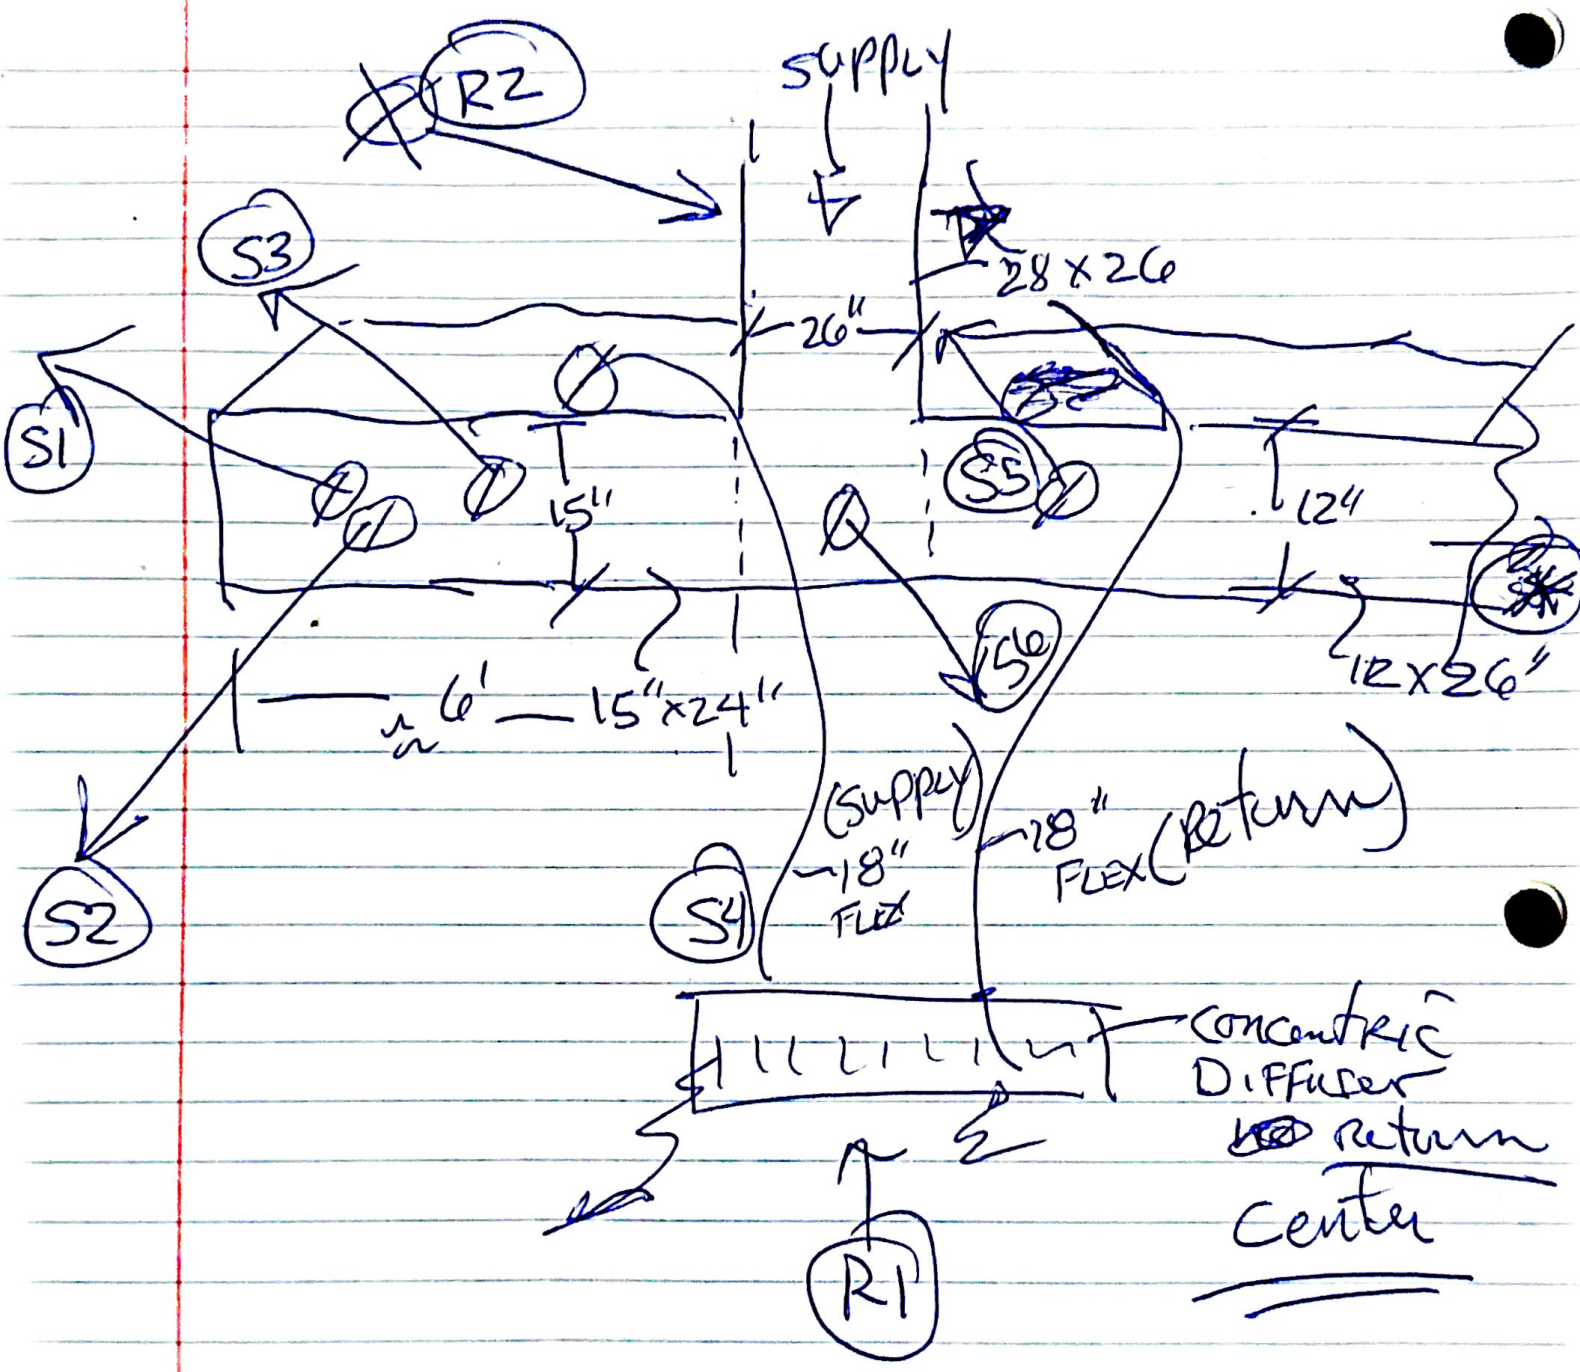 R2
SUPPLY
S3
28 x 26
26"
S1
S5
15"
12"
S6
12 x 26"
≈ 6'
15" x 24"
(SUPPLY)
18"
FLEX
18"
FLEX (Return)
S4
S2
Concentric
Diffuser
Return
Center
R1